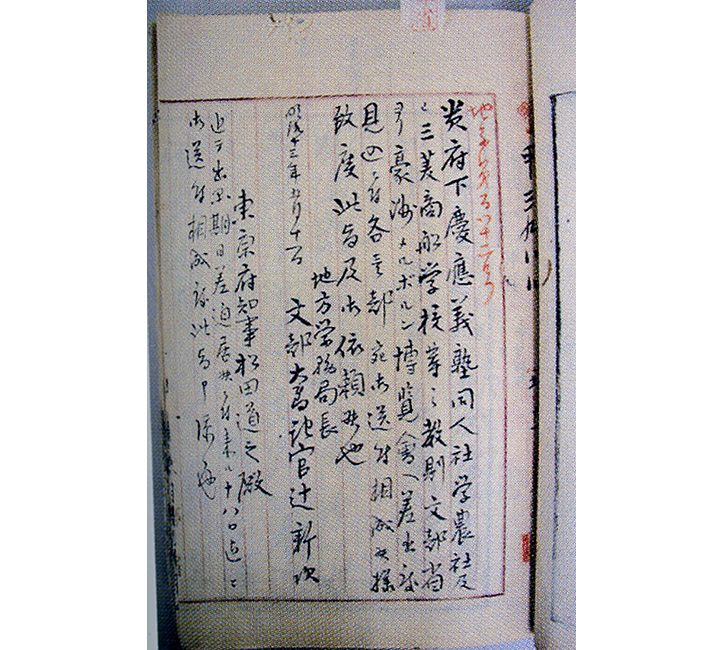 貴府下慶應義塾同人社学農社及
ヒ三菱商船学校等之教則文部省
ヨリ豪洲メルボルン博覧會ヘ差出度
見込ニ付各壱部宛御送付相成候様
致度此旨及御依頼候也
明治十三年五月十一日
地方学務局長
文部大書記官辻新次
東京府知事松田道之殿
追テ出品期日差迫居候ニ付来ル十八日迄ニ
御送付相成度此旨申添候也